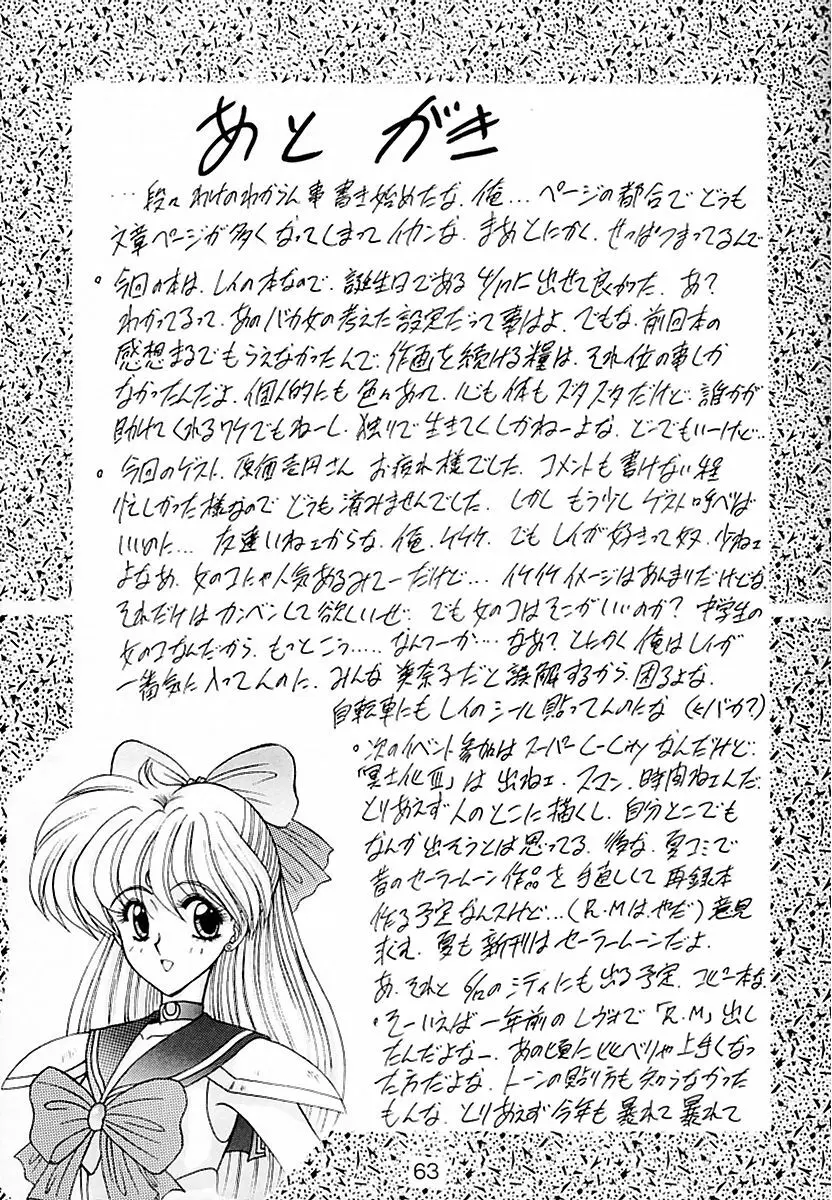 あとがき
…段々わけのわからん事書き始めたな、俺…ページの都合でどうも
文章ページが多くなってしまってイカンな。まあとにかく、せっぱつまってるんで
。今回の本は、レイの本なので、誕生日である4/17に出せて良かった。あ?
わかってるって、あのバカ女の考えた設定だって事はよ。でもな、前回本の
感想まるでもらえなかったんで、作画を続ける糧は、それ位の事しか
なかったんだよ。個人的にも色々あって、心も体もズタズタだけど、誰かが
助けてくれるワケでもねーし、独りで生きてくしかねーよな。どーでもいーけど…
。今回のゲスト、原価壱円さん お疲れ様でした。コメントも書けない程
忙しかった様なので どうも済みませんでした。しかし もう少しゲスト呼べりば
いいのに… 友達いねェからな、俺、ケケケ。でも レイが好きって奴、少ねェ
よなあ。女のコにゃ人気あるみてーだけど… イケイケイメージはあんまりだけどな
それだけはカンベンして欲しいぜ。でも女のコはそこがいいのか? 中学生の
女のコなんだから、もっとこう……なんつーか…なあ?とにかく俺はレイが
一番気に入ってんのに、みんな 美奈子だと誤解するから、困るよな。
自転車にもレイのシール貼ってんのにな (←バカ?)
。次のイベント参加はスーパーC-Cityなんだけど、
「冥土化Ⅲ」は出ねェ。スマン、時間ねェんだ
とりあえず人のとこに描くし、自分とこでも
なんか出そうとは思ってる。 夏コミで
昔のセーラームーン作品を手直しして再録本
作る予定なんスけど…(R.Mはやだ)意見
求む。夏も新刊はセーラームーンだよ。
あ、それと 6/10のシティにも出る予定。コピー本な
。そーいえば一年前のレヴォで「R.M」出し
たんだよなー。あの頃に比べりゃ上手くなっ
た方だよな。トーンの貼り方も知らなかった
もんな。とりあえず今年も暴れて暴れて
63